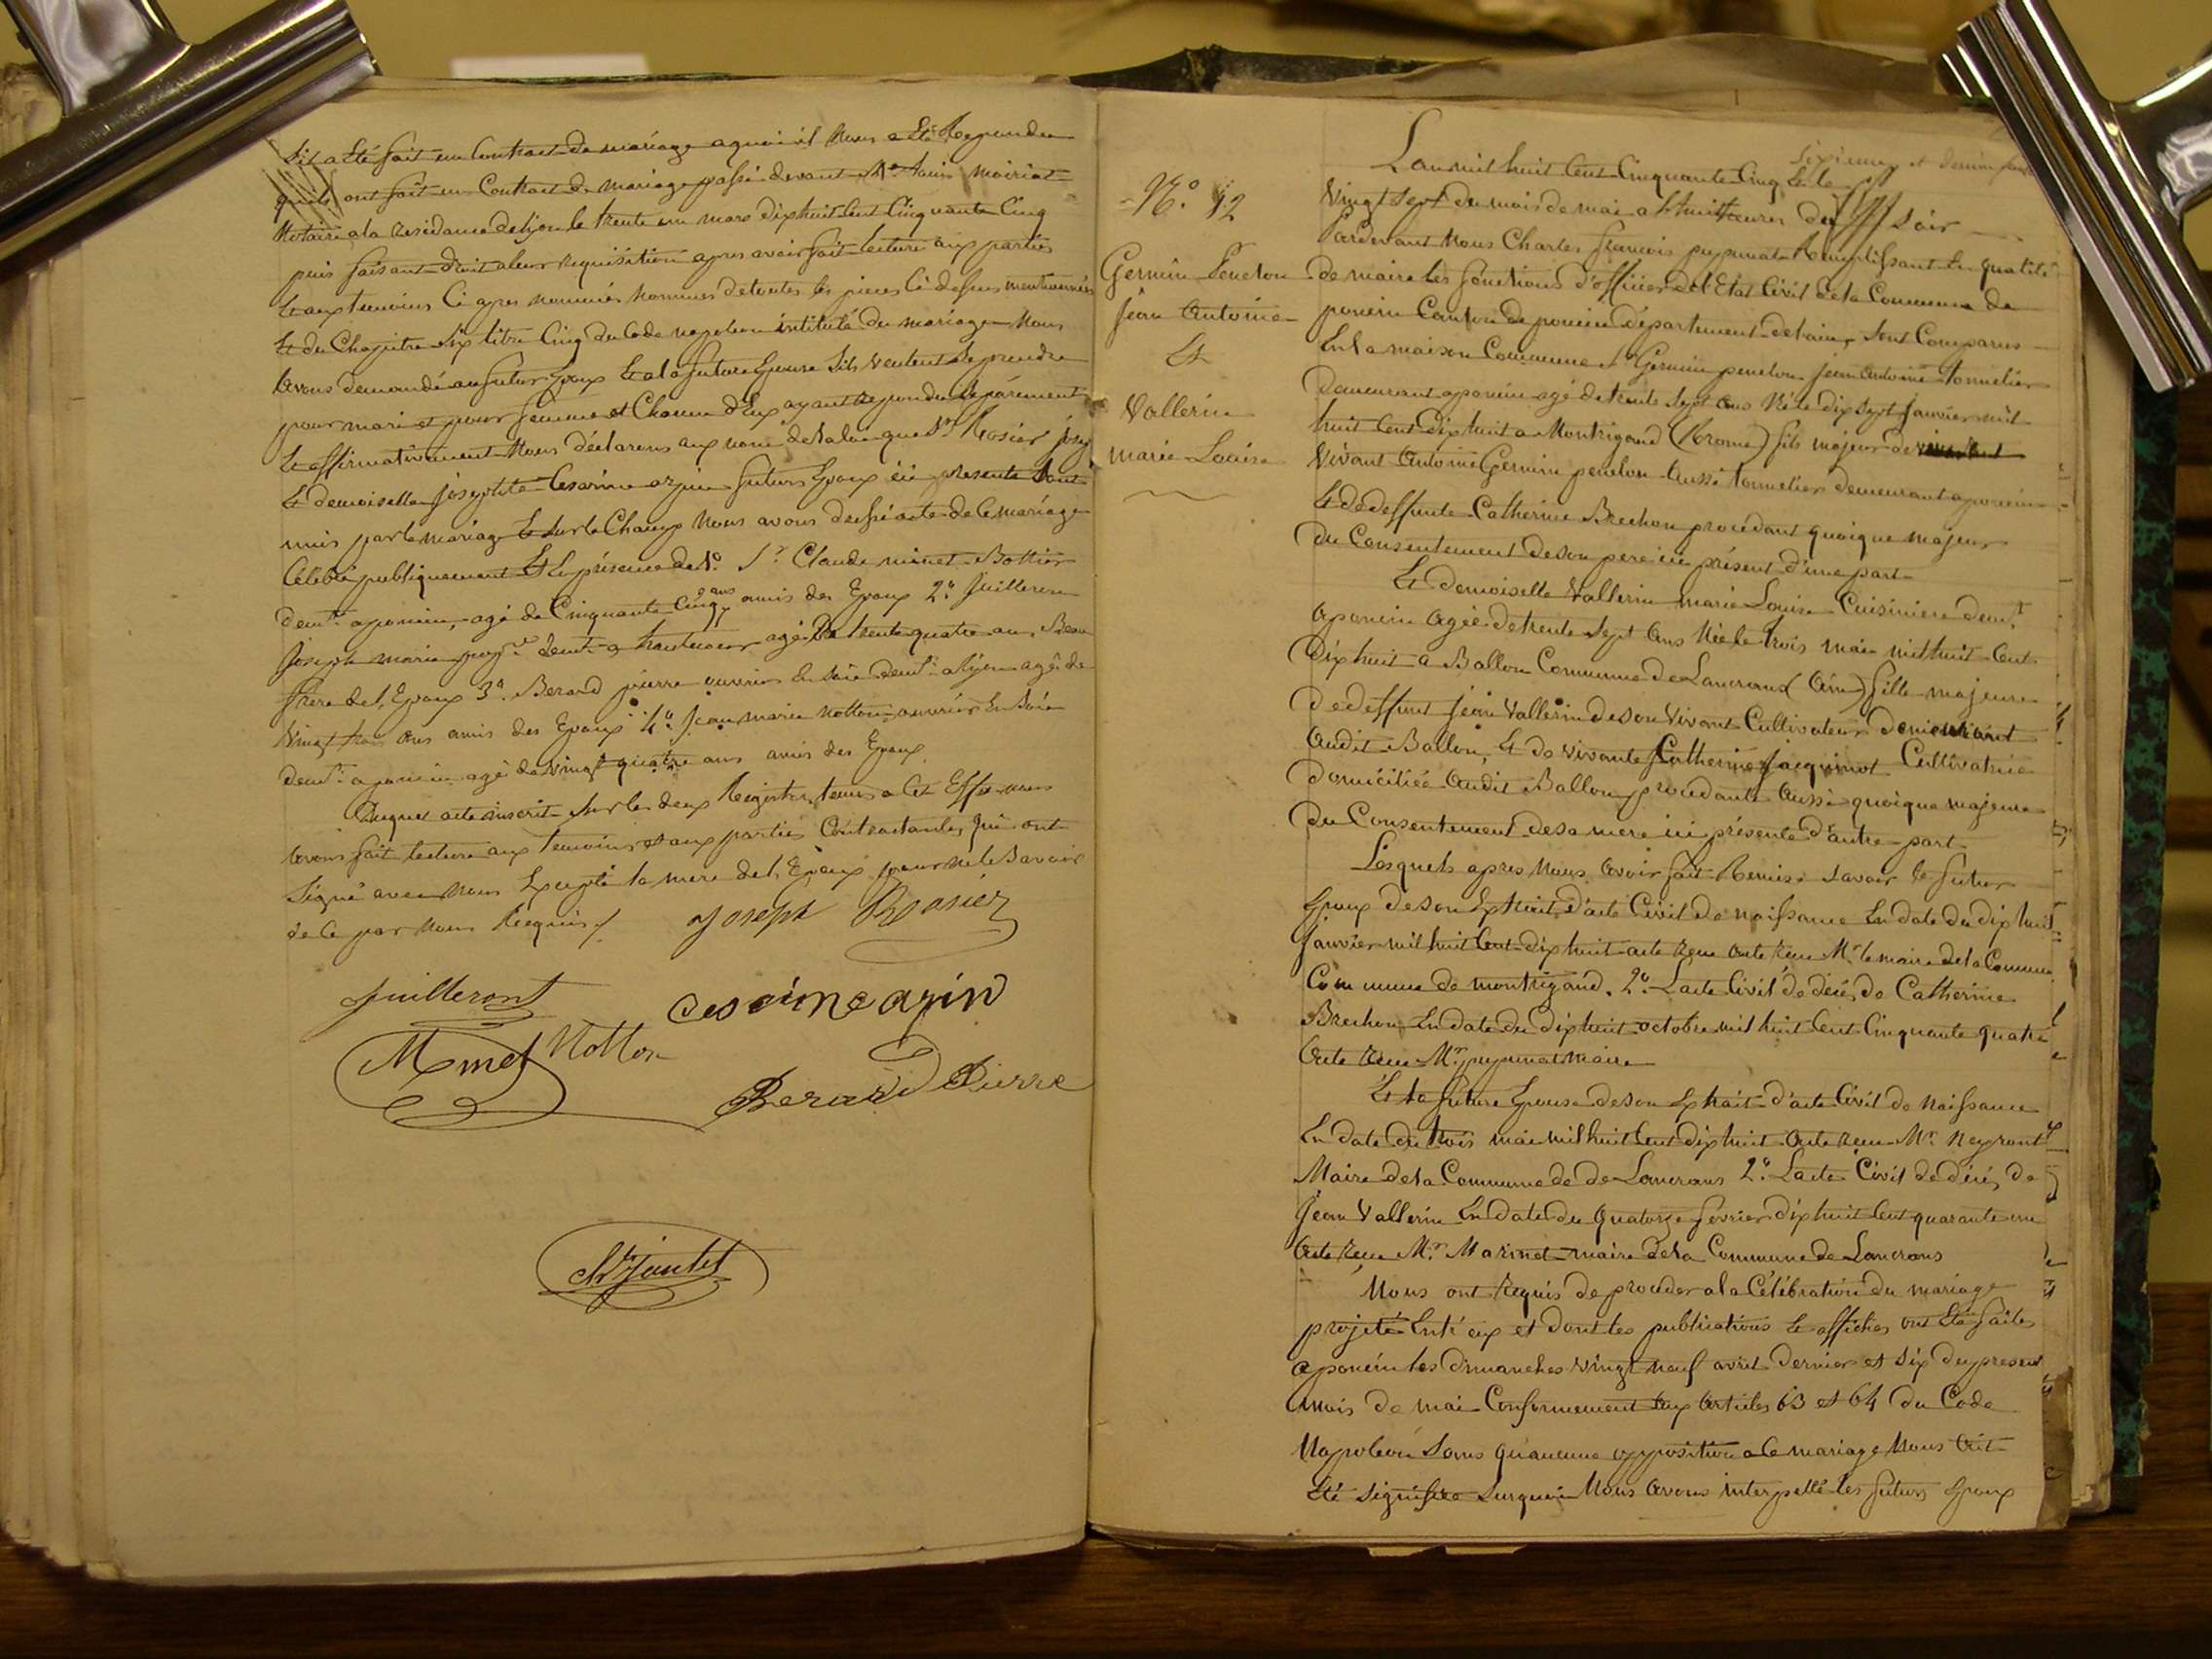 S'il a Été fait un Contrat de mariage a quoi il Nous a Été Repondu
quils ont fait un Contrat de mariage passé devant Me
Notaire a la residance de le trente un mars dix huit Cent Cinquante Cinq
puis faisant droit a leur requisition apres avoir fait lecture aux parties
Et aux temoins Ci apres nommés de toutes les pieces Ci dessus mentionnées
Et du Chapitre Six titre Cinq du Code napoleon intitulé du mariage Nous
Avons demandé au futur Epoux Et a la future Epouse S'ils veulent se prendre
pour mari et pour femme et Chacun d'Eux ayant repondu séparément
Et affirmativement Nous déclarons aux nom de la loi que Sr Rosier josep
Et demoiselle Cesarine azein futurs Epoux ici présents Sont
unis par le mariage Et Sur le Champ Nous avons dressé acte de Ce mariage
Célébré publiquement En présence de 1o. Sr Claude minet Bottier
demt a poncin, agé de Cinquante Cinq ans amis des Epoux 2o Juilleron
Joseph marie demt a agé de trente quatre ans Beau
frère de l'Epoux 3o. Berard pierre ouvrier En soie demt a agé de
Vingt trois ans amis des Epoux 4o Jean marie Notton ouvrier En soie
demt a poncin agé de vingt quatre ans amis des Epoux
Duquel acte inscrit Sur les deux Registres tenus a Cet Effet nous
Avons fait lecture aux temoins et aux parties Contractantes qui ont
Signé avec nous Excepté la mere de l'Epoux pour ne le Savoir
de Ce par Nous Requis
Joseph Rosier
Juilleront
Cesarine azein
Minet Notton
Berard Pierre
N.o 12
Germin Penelon
Jean Antoine
Et
Vallerin
marie Louise
L'an mil huit Cent Cinquante Cinq Et le
Vingt Sept du mois de mai a huit heures du Soir
Pardevant Nous Charles francois Remplissant En qualité
de maire les fonctions d'officier de l'Etat Civil de la Commune de
poncin Canton de poncin département de l'ain, Sont Comparus
En la maison Commune Sr Germin penelon jean antoine tonnelier
Demeurant a poncin agé de trente Sept ans Né le dix Sept Janvier mil
huit Cent dix huit a Montrigaud (Drome) fils majeur de
Vivant Antoine Germin penelon Aussi tonnelier demeurant a poncin
Et de deffunte Catherine Brechon procédant quoique majeur
du Consentement de son pere ici présent d'une part
Et demoiselle Vallerin marie Louise Cuisiniere demt
a poncin agée de trente Sept ans Née le trois mai mil huit Cent
Dix huit a Ballon Commune de Lancrans (Ain) fille majeure
de deffunt jean Vallerin de son Vivant Cultivateur demeurant
Audit Ballon, Et de vivante Catherine Jacquinot Cultivatrice
domiciliée Audit Ballon procedante Aussi quoique majeure
du Consentement de sa mere ici présente d'autre part
Lesquels apres Nous Avoir fait Remise savoir le futur
Epoux de son Extrait d'acte Civil de naissance En date du dix huit
Janvier mil huit Cent dix huit acte reçu Mr le maire de la Commune
Commune de montrigaud. 2o. L'acte Civil de décés de Catherine
Brechon En date du dix huit octobre mil huit Cent Cinquante quatre
Acte reçu Mr maire
Et la future Epouse de son Extrait d'acte Civil de Naissance
En date du trois mai mil huit Cent dix huit Acte reçu Mr Neyront
Maire de la Commune de de Lancrans 2o. L'acte Civil de décés de
Jean Vallerin En date du quatorze fevrier dix huit Cent quarante un
Acte reçu Mr Marinet maire de la Commune de Lancrans
Nous ont requis de proceder a la Célébration du mariage
projeté Entr'eux et dont les publications Et affiches ont Été faites
a poncin les dimanches vingt neuf avril dernier et six du present
mois de mai Conformement Aux Articles 63 et 64 du Code
Napoleon Sans qu'aucune opposition a Ce mariage Nous Ait
Été Signifiée Surquoi Nous Avons interpellé les futurs Epoux